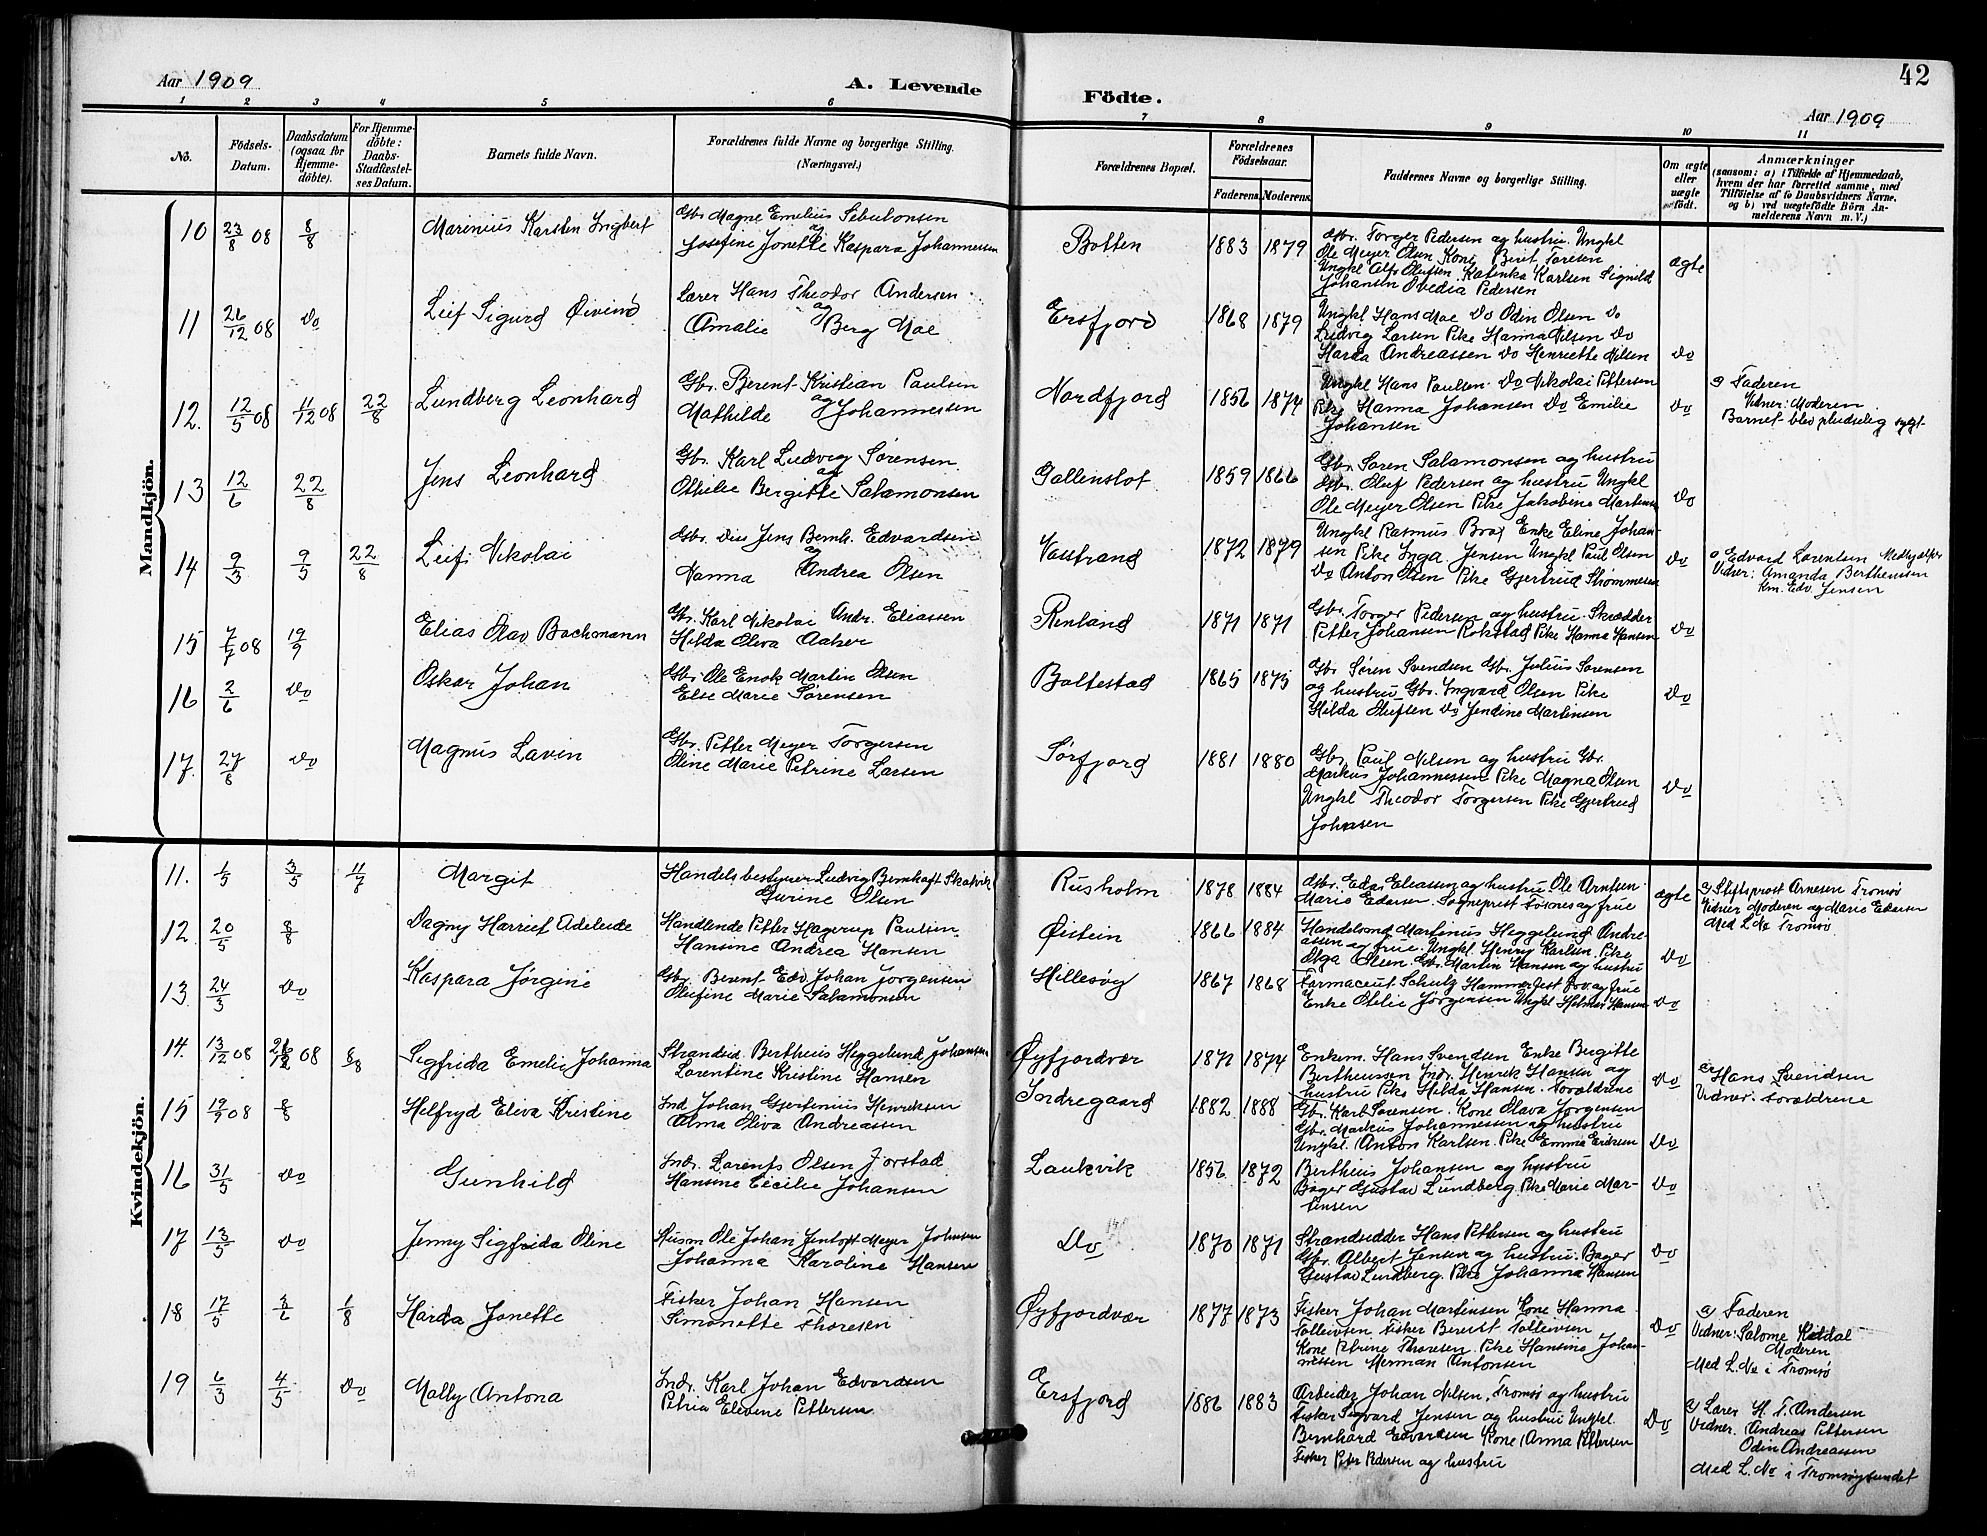 Aar 1909
A. Levende Födte.
42
Aar 1909
1 2 3 4 5 6 7 8 9 10 11
No.
Födsels-Datum.
Daabsdatum (ogsaa for Hjemme-döbte).
For Hjemme-döbte: Daabs-Stadfæstel-ses Datum.
Barnets fulde Navn.
Forældrenes fulde Navne og borgerlige Stilling. (Næringsvei.)
Forældrenes Bopæl.
Forældrenes Födselsaar.
Faderens Moderens
Faddernes Navne og borgerlige Stilling.
Om ægte eller uægte født.
Anmærkninger
(saasom: a) i Tilfælde af Hjemmedaab, hvem der har forrettet samme, med Tilföielse af to Daabsvidners Navne. og b) ved uægtefödte Börn An-melderens Navn m. V.)
Mandkjön.
10 23/8 08 8/8 Marinius Karsten Ingbert
Gbr Magne Emelius Sebulonsen
og
Josefine Jonette Kaspara Johannessen
Botten 1883 1879
Gbr. Torger Pedersen og hustru. Ungkl
Ole Meyer Olsen Kone Berit Toresen
Ungkl Alfr Olufsen. Katinka Karlsen Signild
Johansen Ovedia Pedersen
ægte
11 26/12 08 Do Leif Sigurd Øivind
Lærer Hans Theodor Andersen
og
Amalie Berg Moe
Ersfjord 1868 1879
Ungkl Hans Moe Do Odin Olsen Do
Ludvig Larsen Pike Hanna Nilsen Do
Harda Andreassen Do Henriette Nilsen
Do
12. 12/5 08 11/12 08 22/8 Lundberg Leonhard
Gbr. Berent Kristian Paulsen
og
Mathilde Johannessen
Nordfjord 1856 1874
Ungkl Hans Paulsen. Do Nikolai Pettersen
Pike Hanna Johansen Do Emilie
Johansen
Do
a) Faderen
Vidner: Moderen
Barnet blev pludselig sygt.
13 12/6 22/8 Jens Leonhard
Gbr. Karl Ludvig Sørensen
og
Othelie Bergitte Salamonsen
Gallenslot 1859 1866
Gbr. Soren Salamonsen og hustru
Gbr. Oluf Pedersen og hustru Ungkl
Ole Meyer Olsen Pike Jakobine Martinsen
Do
14 9/3 9/5 22/8 Leif Nikolai
Gbr. Jens Bernh. Edvardsen
og
Nanna Andrea Olsen
Vasstrand 1872 1879
Ungkl Rasmus Brox Enke Eline Johan-
sen Pike Inga Jensen Ungkl Paul Olsen
Do Anton Olsen Pike Gjertrud Strømmesen
Do
Edvard Lorentsen Medhjælper
Vidner: Amanda Berthemsen
Km. Edv. Jensen
15 7/7 08 19/7 Elias Olav Bachmann
Gbr. Karl Nikolai Andr. Eliassen
Hilda Oliva Aaker
Renland 1871 1871
Gbr. Torger Pedersen og hustru. Skrædder
Petter Johansen Rokstad Pike Hanna Hansen
Do
16 2/6 Do Oskar Johan
Gbr. Ole Enok Martin Olsen
Else Marie Sørensen
Baltestad 1865 1875
Gbr Søren Svendsen Gbr. Julius Sorensen
og hustru Gbr. Ingvard Olsen Pike
Hilda Olufsen Do Jendine Martinsen
Do
17. 27/8 Do Magnus Lavin
Gbr. Petter Meyer Torgersen
Oline Marie Petrine Larsen
Sørfjord 1881 1880
Gbr. Paul Nilsen og hustru Gbr.
Markus Johannessen Pike Magna Olsen
Ungkl Theodor Torgersen Pike Gjertrud
Johnsen
Do
Kvindekjön.
11. 1/5 3/5 11/7 Margit
Handelsbestyrer Ludvig Bernhoft Skatvik
Gurine Olsen
Rusholm 1878 1884
Gbr. Edv. Eleassen og hustru. Ole Arntsen
Marie Edersen. Sogneprest Tosnes og frue
ægte
a) Stiftsprost Arnesen Tromsø
Vidner Moderen og Marie Edersen
Med L. No Tromsø
12. 20/5 8/8 Dagny Harriet Adeleide
Handlende Petter Hagerup Paulsen
Hansine Andrea Hansen
Øistein 1866 1884
Handelsmd Martinus Heggelund Andre-
assen og frue. Ungkl. Henry Karlsen Pike
Olga Olsen. Gbr. Martin Hansen og hustru
Do
13. 24/3 Do Kaspara Jørgine
Gbr. Berent Edv Johan Jorgensen
Olufine Marie Salamonsen
Hillesøy 1867 1868
Farmaceut Schulz Hammerfest Brox og frue
Enke Otelie Jørgensen Ungkl Hilmar Hansen
Do
14. 13/12 08 26/12 08 8/8 Sigfrida Emelie Johanna
Strandsid. Bertheus Heggelund Johansen
Lorentine Kristine Hansen
Øyfjordvær 1871 1874
Enkem. Hans Svendsen Enke Bergitte
Bertheussen Indr. Henrik Hansen og
hustru Pike Hilda Hansen. forældrene
Do
a) Hans Svendsen
Vidner. forældrene
15 19/9 08 8/8 Helfryd Eliva Kristine
Ind Johan Gjertenius Henriksen
Alma Oliva Andreassen
Indregaard 1882 1888
Gbr. Karl Sorensen. Kone Olava Jorgensen
Gbr. Markus Johannessen og hustru
Ungkl. Anton Karlsen. Pike Emma Eriksen
Do
16 31/5 Do Gunhild
Indr. Lorents Olsen Jorstad
Hansine Cecilie Johansen
Laukvik 1856 1872
Bertheus Johansen og hustru
Bager Gustav Lundberg. Pike Marie Mar-
tinsen
Do
17 13/5 Do Jenny Sigfrida Oline
Husm Ole Johan Jentoft Meyer Johnsen
Johanna Karoline Hansen
Do 1870 1871
Strandsidder Hans Pettersen og hustru
Gbr. Albert Jensen og hustru. Bager
Gustav Lundberg. Pike Johanna Hansen
Do
18 17/5 2/6 1/8 Harda Jonette
Fisker Johan Hansen
Simonette Thoresen
Øyfjordvær 1877 1873
Fisker Johan Martinsen Kone Hanna
Tollevsen Fisker Berent Tollevsen
Kone Petrine Thoresen. Pike Hansine Johan-
nessen Herman Antonsen
Do
a) Faderen
Vidner: Salome
Moderen
Med L. No i Tromsø
19 6/3 4/5 Do Mally Antona
Indr. Karl Johan Edvardsen
Petria Elevine Pettersen
Ersfjord 1886 1883
Arbeider Johan Nilsen, Tromsø og hustru
Fisker Sigvard Jensen og hustru Ungkl.
Bernhard Edvardsen Kone Anna Pettersen
Fisker Peter Pedersen og hustru
Do
a) Lærer H. T. Andersen
Vidner. Andreas Pettersen
Odin Andreassen
Med L. No i Tromsøysundet